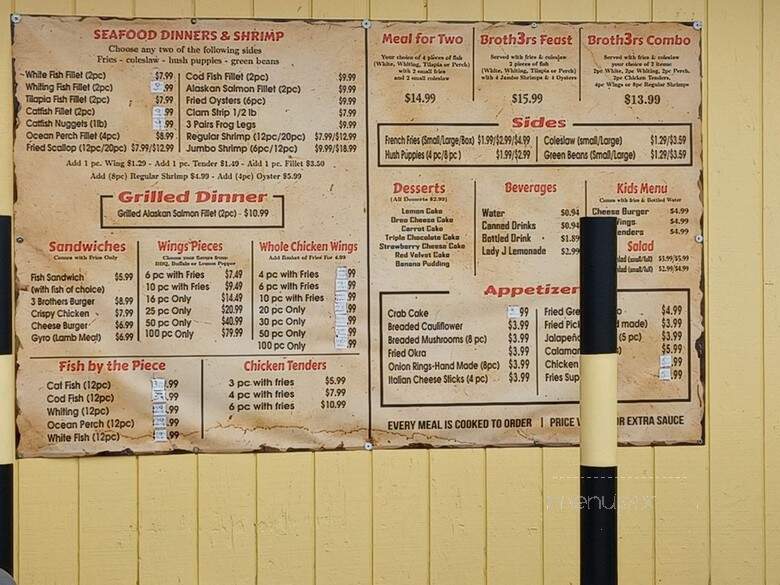 SEAFOOD DINNERS & SHRIMP
Choose any two of the following sides
Fries - coleslaw - hush puppies - green beans
White Fish Fillet (2pc) $7.99
Whiting Fish Fillet (2pc) .99
Tilapia Fish Fillet (2pc) $7.99
Catfish Fillet (2pc) .99
Catfish Nuggets (1lb) .99
Ocean Perch Fillet (4pc) $8.99
Fried Scallop (12pc/20pc) $7.99/$12.99
Cod Fish Fillet (2pc) $9.99
Alaskan Salmon Fillet (2pc) $9.99
Fried Oysters (6pc) $9.99
Clam Strip 1/2 lb $7.99
3 Pairs Frog Legs $9.99
Regular Shrimp (12pc/20pc) $7.99/$12.99
Jumbo Shrimp (6pc/12pc) $9.99/$18.99
Add 1 pc. Wing $1.29 - Add 1 pc. Tender $1.49 - Add 1 pc. Fillet $3.50
Add (8pc) Regular Shrimp $4.99 - Add (4pc) Oyster $5.99
Grilled Dinner
Grilled Alaskan Salmon Fillet (2pc) - $10.99
Sandwiches
Comes with Fries Only
Fish Sandwich $5.99
(with fish of choice)
3 Brothers Burger $8.99
Crispy Chicken $7.99
Cheese Burger $6.99
Gyro (Lamb Meal) $6.99
Wings Pieces
Choose your Sauces from
BBQ, Buffalo or Lemon Pepper
6 pc with Fries $7.49
10 pc with Fries $9.49
16 pc Only $14.49
25 pc Only $20.99
50 pc Only $40.99
100 pc Only $79.99
Whole Chicken Wings
Add Basket of Fries For 4.99
4 pc with Fries .99
6 pc with Fries .99
10 pc with Fries .99
20 pc Only .99
30 pc Only .99
50 pc Only .99
100 pc Only .99
Fish by the Piece
Cat Fish (12pc) .99
Cod Fish (12pc) .99
Whiting (12pc) .99
Ocean Perch (12pc) .99
White Fish (12pc) .99
Chicken Tenders
3 pc with fries $5.99
4 pc with fries $7.99
6 pc with fries $10.99
Meal for Two
Your choice of 4 pieces of fish
(White, Whiting, Tilapia or Perch)
with 2 small fries
and 2 small coleslaw
$14.99
Broth3rs Feast
Served with fries & coleslaw
2 pieces of fish
(White, Whiting, Tilapia or Perch)
with 4 Jumbo Shrimps & 4 Oysters
$15.99
Broth3rs Combo
Served with fries & coleslaw
your choice of 2 items:
2pc White, 2pc Whiting, 2pc Perch,
2pc Chicken Tenders,
4pc Wings or 8pc Regular Shrimps
$13.99
Sides
French Fries (Small/Large/Box) $1.99/$2.99/$4.99
Hush Puppies (4 pc/8 pc) $1.99/$2.99
Coleslaw (small/Large) $1.29/$3.59
Green Beans (Small/Large) $1.29/$3.59
Desserts
(All Desserts $2.99)
Lemon Cake
Oreo Cheese Cake
Carrot Cake
Triple Chocolate Cake
Strawberry Cheese Cake
Red Velvet Cake
Banana Pudding
Beverages
Water $0.94
Canned Drinks $0.94
Bottled Drink $1.89
Lady J Lemonade $2.99
Kids Menu
Comes with fries & Bottled Water
Cheese Burger $4.99
Wings $4.99
enders $4.99
Salad
lad (small/full) $3.99/$5.99
lad (small/full) $2.99/$4.99
Appetizer
Crab Cake .99
Breaded Cauliflower $3.99
Breaded Mushrooms (8 pc) $3.99
Fried Okra $3.99
Onion Rings-Hand Made (8pc) $3.99
Italian Cheese Sticks (4 pc) $3.99
Fried Gre o $4.99
Fried Pick d made) $3.99
Jalapeño (5 pc) $3.99
Calamar $5.99
Chicken .99
Fries Sup .99
EVERY MEAL IS COOKED TO ORDER | PRICE OR EXTRA SAUCE